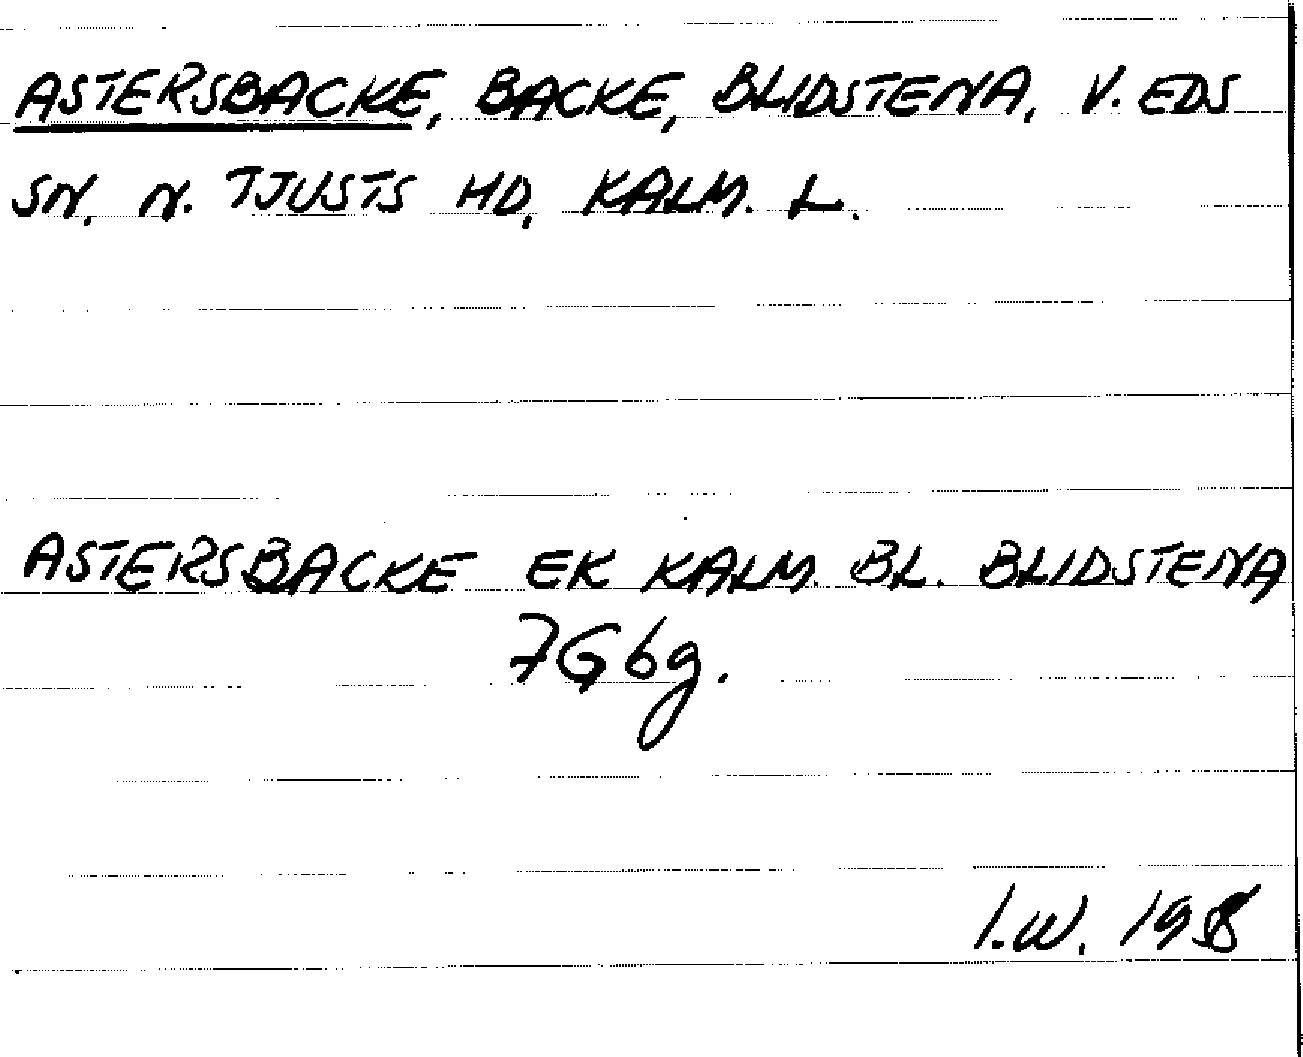 ASTERSBACKE, BACKE, BLIDSTENA, V. EDS
SN. N. TJUSTS HD, KALM. L.
ASTERSBACKE EK KALM. BL. BLIDSTENA
7G6g.
I.W.